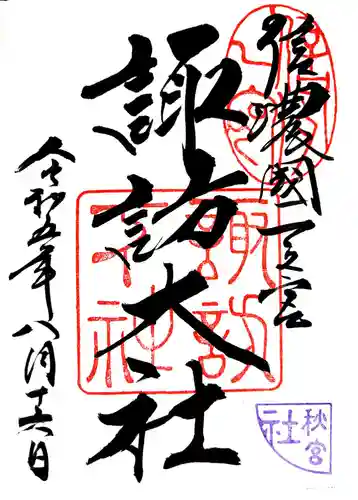 信濃國一之宮
諏訪大社
令和五年八月十六日
諏訪大社
秋宮
社